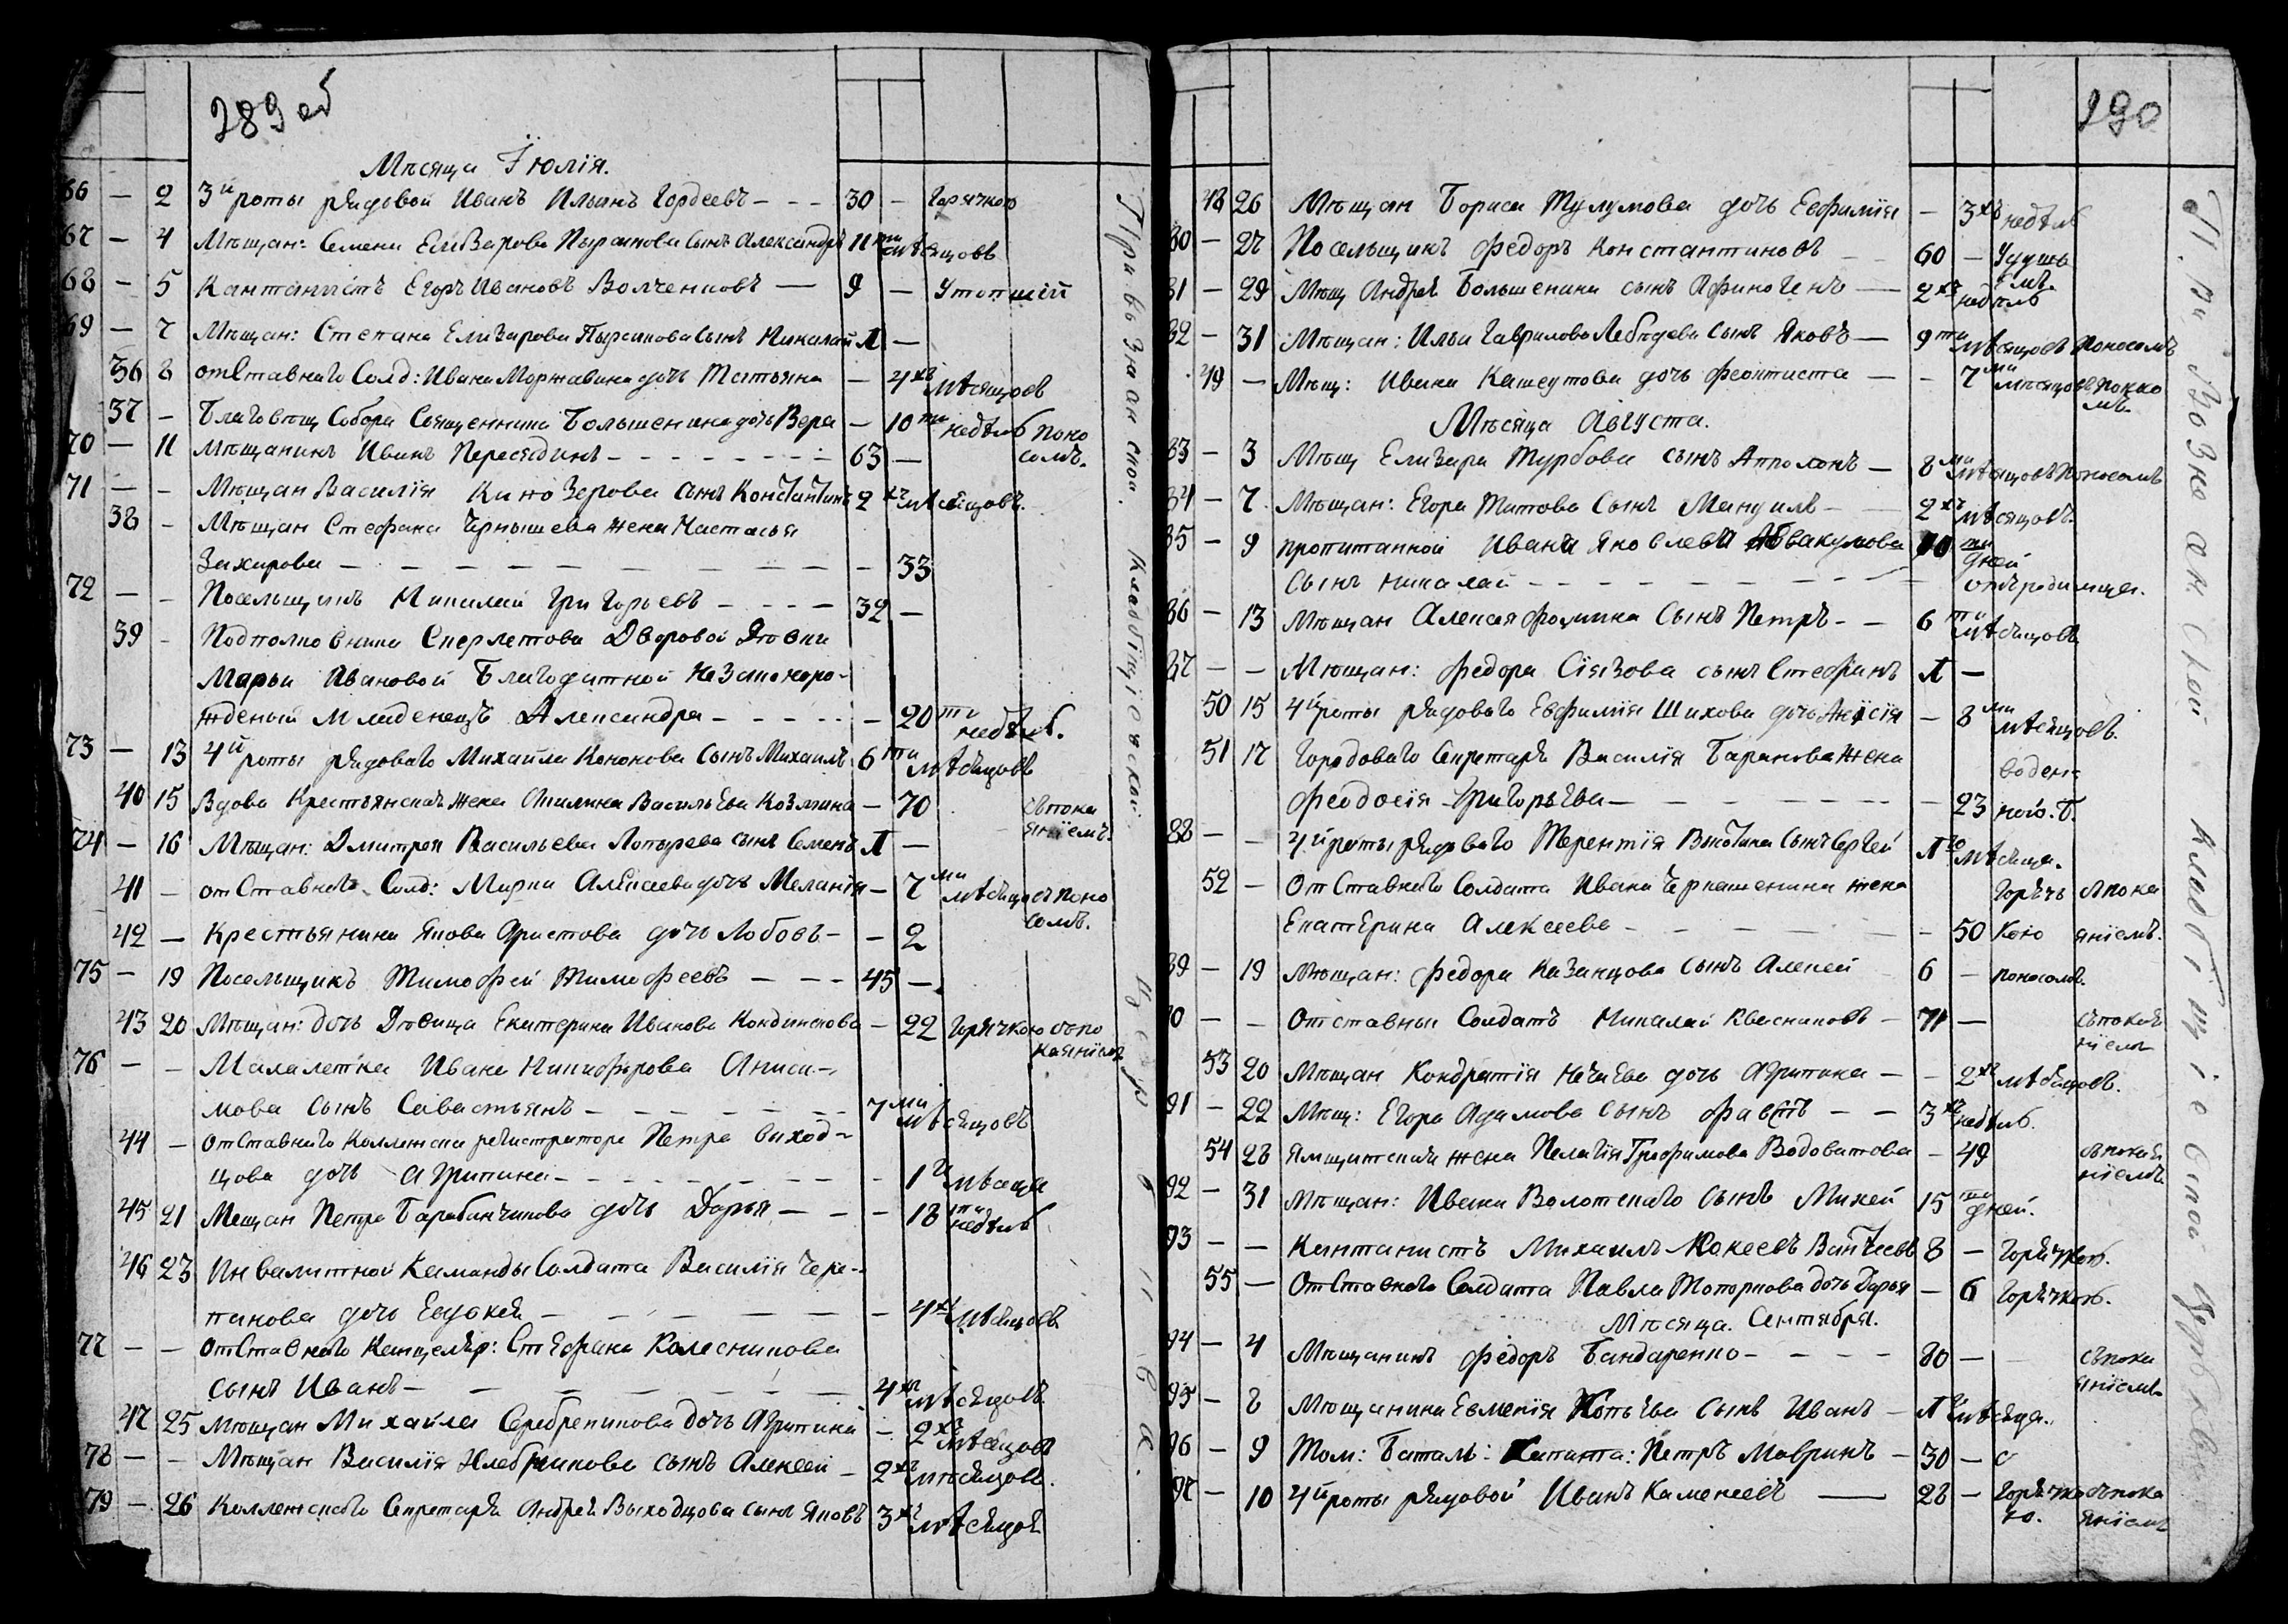 289 об
Мѣсяца Іюлія.
66 — 2 3й роты рядовой Иванъ Ильинъ Гордеевъ — 30 — Горячкою
67 — 4 Мѣщан: Семена Елизарова сынъ Александръ 11ти мѣсяцовъ
68 — 5 Кантанистъ Егоръ Ивановъ Волченковъ — 9 — Утопший
69 — 7 Мѣщан: Степана Елизарова сынъ Николай —
36 8 отставнаго Солд: Ивана Моржавина дочь Татьяна — 4хъ мѣсяцовъ
37 — Благовѣщ Собора Священника Большенина дочь Вера — 10ти недѣль поно
сомъ.
70 — 11 Мѣщанинъ Иванъ Переядинъ — 63 —
71 — — Мѣщан Василія Кинозерова сынъ Константинъ 2хъ мѣсяцовъ.
38 — Мѣщан Стефана Чернышева жена Настасья
Захарова — 33
72 — — Посельщикъ Николай Григорьевъ — 32 —
39 — Подполковника Дворовой Дѣвки
Марьи Ивановой Благодатной незаконоро-
жденый младенецъ Александра — 20ти недѣль.
73 — 13 4й роты рядоваго Михайла Кононова сынъ Михаилъ 6ти мѣсяцовъ
40 15 Вдова Крестьянская жена Акилина Васильева Козмина — 70 съпока
яніемъ.
74 — 16 Мѣщан: Дмитрея Васильева Лопырева сынъ Семенъ —
41 — отставнаго Солд: Марка Алексеева дочь Меланія — 7ми мѣсяцовъ поно
сомъ.
42 — Крестьянина Якова Аристова дочь Любовь — 2
75 — 19 Посельщикъ Тимофей Тимофеевъ — 45 —
43 20 Мѣщан: дочь Дѣвица Екатерина Иванова Кондинскова — 22 Горячкою съпо
каяніемъ
76 — — Малалетка Ивана Никифорова Аниси-
мова сынъ Савастьянъ — 7ми мѣсяцовъ
44 — отставнаго Коллежска регистратора Петра Виход-
цова дочь Агрипина — 1го мѣсяца
45 21 Мещан Петра Барабанчикова дочь Дарья — 18ти недѣль
46 23 Инвалитной Каманды Солдата Василія Чере-
панова дочь Евдокея — 4хъ мѣсяцовъ
77 — — отставнаго Канцеляр: Стефана Колесникова
сынъ Иванъ — 4хъ мѣсяцовъ
47 25 Мѣщан Михайла Серебреникова дочь Агрипина — 2хъ мѣсяцовъ
78 — — Мѣщан Василія Хлебникова сынъ Алексей — 2хъ мѣсяцовъ.
79 — 26 Коллежскаго Секретаря Андрея Выходцова сынъ Яковъ 3хъ мѣсяцов
При Вознианской Кладбищіенской
290
48 26 Мѣщан Бориса Тулумова дочь Евфимія — 3хъ недѣль
80 — 27 Посельщикъ Федоръ Константиновъ — 60 — Удушь
емъ.
81 — 29 Мѣщ Андрея Большенина сынъ Афиногенъ — 2хъ недѣль
82 — 31 Мѣщан: Ильи Гаврилова Лебедева сынъ Яковъ — 9ти мѣсяцовъ поносомъ
49 — Мѣщ: Ивана Кашеутова дочь Феоктиста — 7ми мѣсяцовъ поносо
мъ.
Мѣсяца Августа.
83 — 3 Мѣщ Елизара Турбова сынъ Апполонъ — 8ми мѣсяцовъ поносомъ
84 — 7 Мѣщан: Егора Титова сынъ Мануилъ — 2хъ мѣсяцовъ.
85 — 9 пропитанной Ивана Яковлева Аввакумова 10ти дней
сынъ Николай — отъ родимца.
86 — 13 Мѣщан Алексея Фомина сынъ Петръ — 6ти мѣсяцовъ
87 — — Мѣщан: Федора Сіязова сынъ Стефанъ —
50 15 4й роты рядоваго Евфимія Шихова дочь Анисія — 8ми мѣсяцовъ.
51 17 Городоваго Секретаря Василія Баранова жена
Феодосія Григорьева — 23 водяною. б.
88 — — 4й роты рядоваго Терентія сынъ Сергей го мѣсяца.
52 — отставнаго Солдата Ивана Чернашенина жена
Екатерина Алексеева — 50 Горячкою съпокаяніемъ.
89 — 19 Мѣщан: Федора Казанцова сынъ Алексей 6 — поносомъ.
90 — — отставный Солдатъ Николай Квасниковъ — 71 — съпокая
ніемъ
53 20 Мѣщан Кондратія Нечаева дочь Агрипина — 2хъ мѣсяцовъ.
91 — 22 Мѣщ: Егора Адамова сынъ Фавстъ — 3хъ недѣль.
54 28 Ямщитская жена Пелагія Трофимова Водоватова — 49 съпокая
ніемъ
92 — 31 Мѣщан: Ивана Волотскаго сынъ Михей 15ти дней.
93 — — Кантанистъ Михаилъ Мокеевъ 8 — Горячкою.
55 — отставнаго Солдата Павла Топоркова дочь Дарья — 6 Горячкою.
Мѣсяца. Сентября.
94 — 4 Мѣщанинъ Федоръ Бандаренко — 80 — съпока
яніемъ
95 — 8 Мѣщанина Евменія Копьева сынъ Иванъ — го мѣсяца.
96 — 9 Том: Баталь: Капита: Петръ Мавринъ — 30 — с
97 — 10 4й роты рядовой Иванъ Каменевъ — 28 — Горячко съпока
ю. яніемъ
Кладбищіенской Церькве